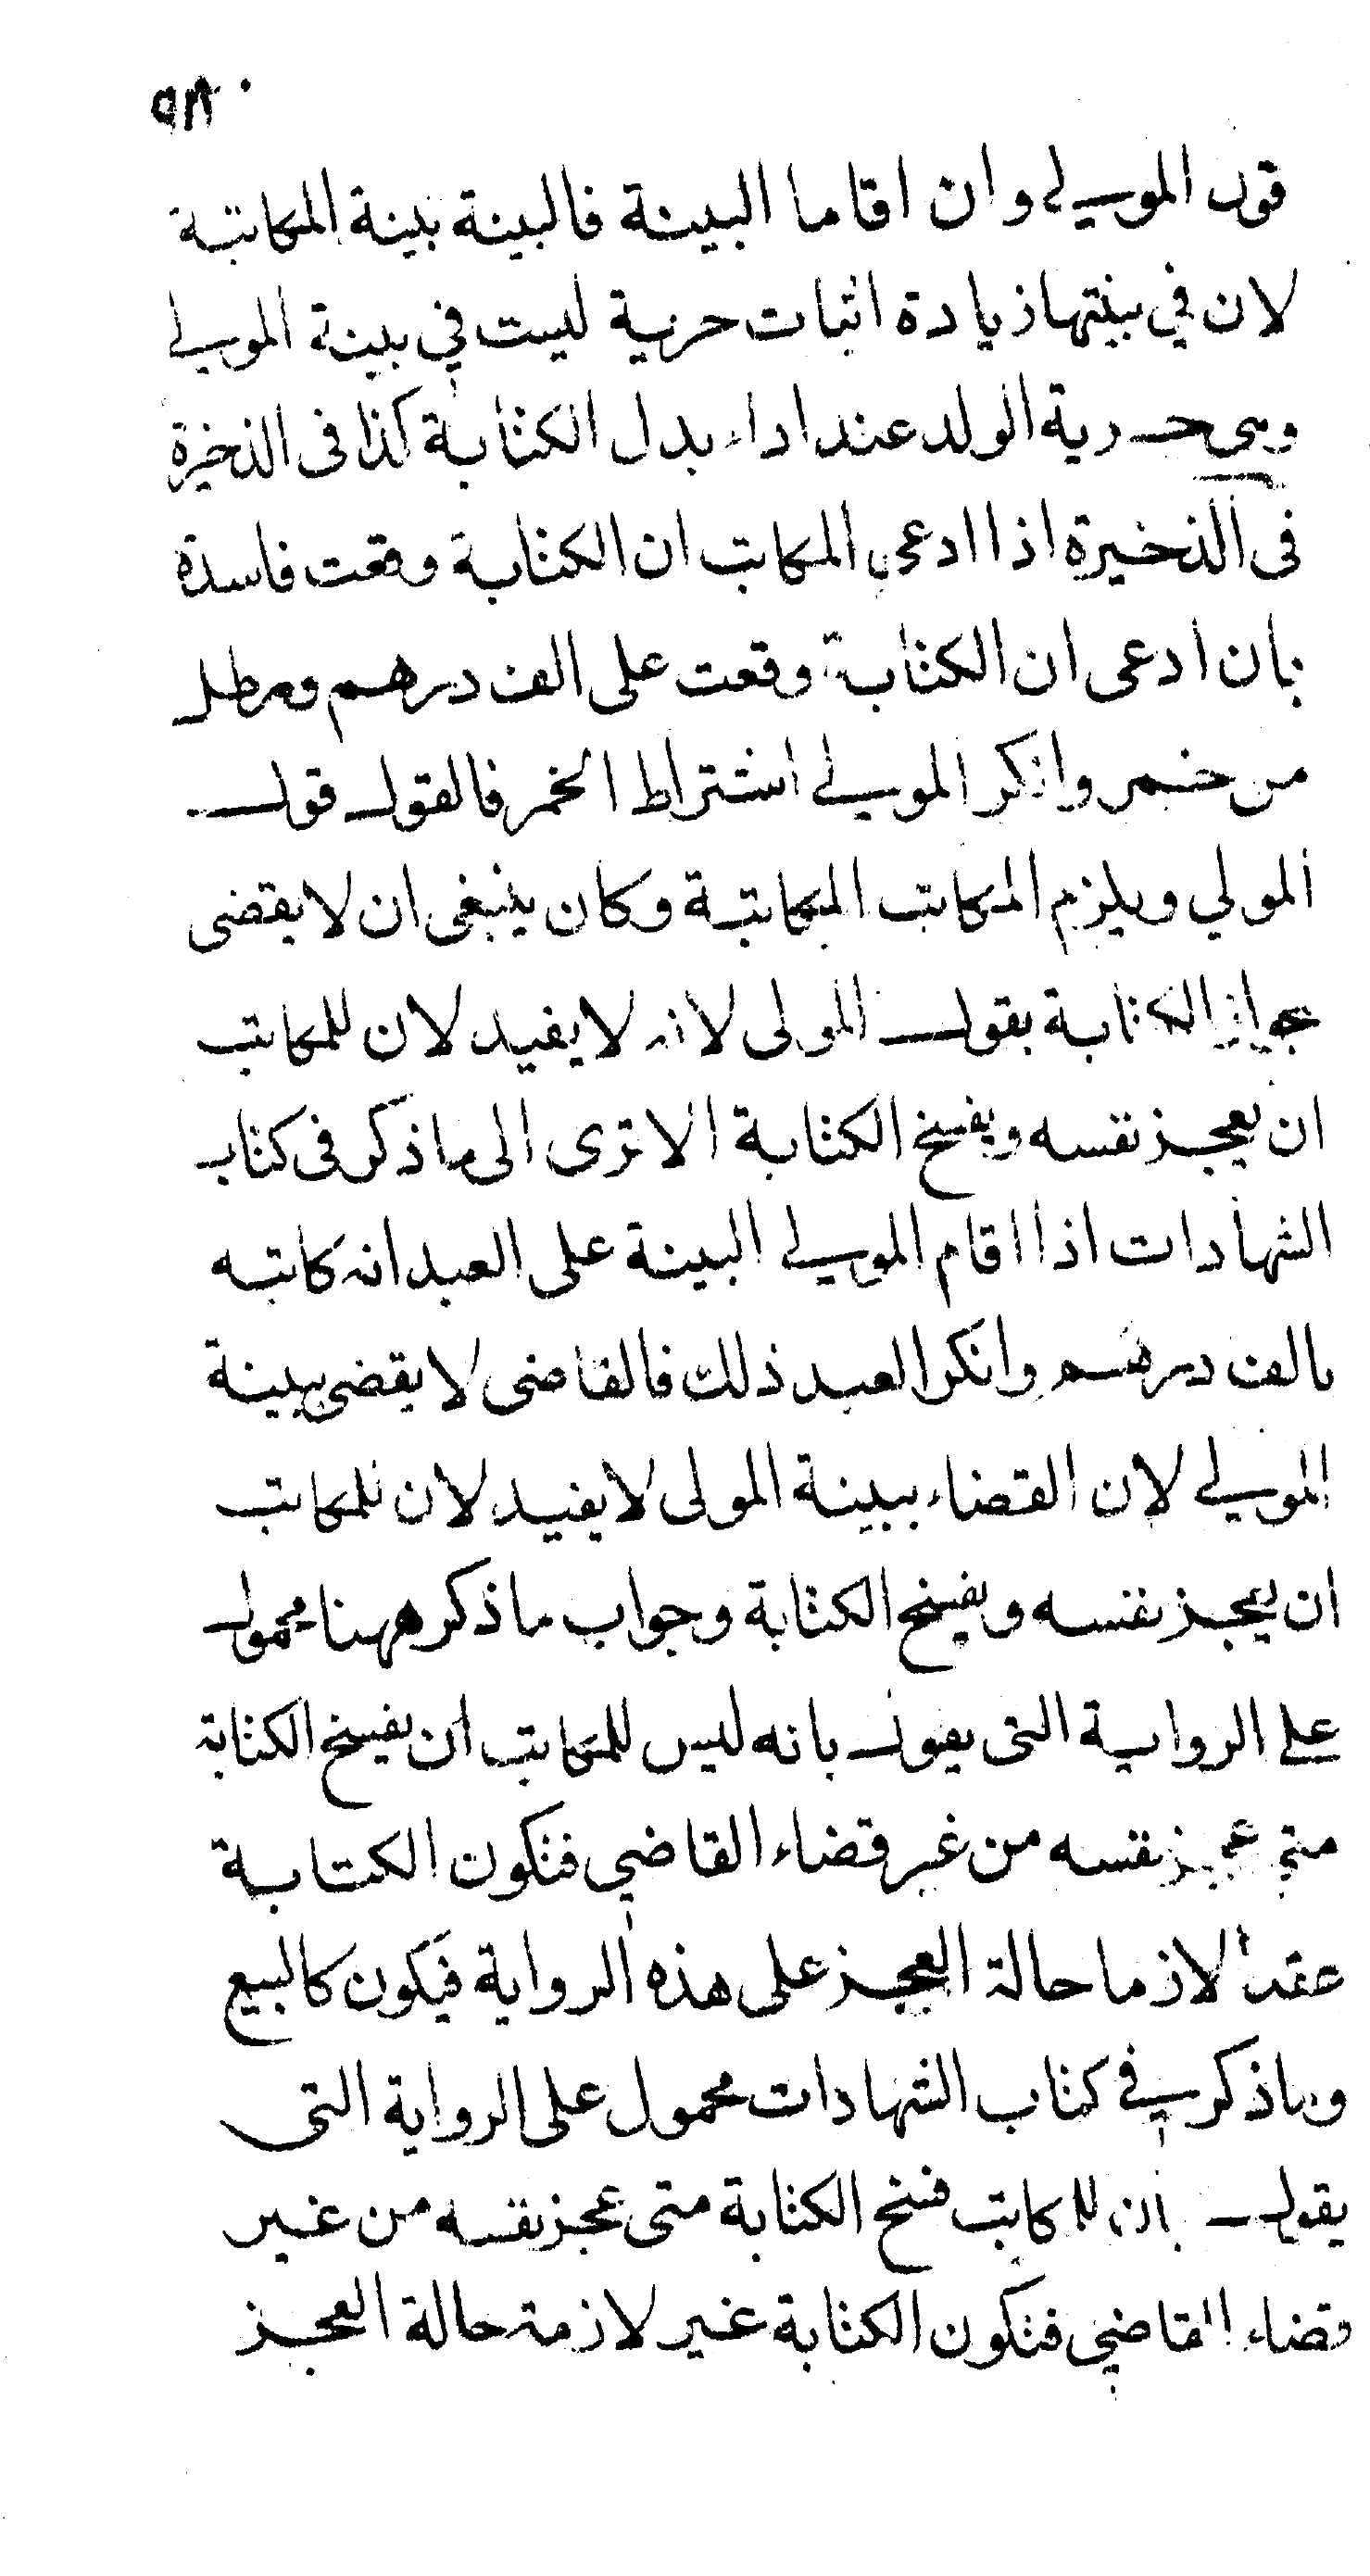 قول المولى وان اقاما البينة فالبينة بينة المكاتبة
لان في بينتها زيادة اثبات حرية ليست في بينة المولى
وهى حرية الولد عند اداء بدل الكتابة كذا فى الذخيرة
فى الذخيرة اذا ادعى المكاتب ان الكتابة وقعت فاسدة
بان ادعى ان الكتابة وقعت على الف درهم ورطل
من خمر وانكر المولى اشتراط الخمر فالقول قول
المولي ويلزم المكاتب المكاتبة وكان ينبغى ان لا يقضى
بجواز الكتابة بقول المولى لانه لا يفيد لان للمكاتب
ان يعجز نفسه ويفسخ الكتابة الا ترى الى ما ذكر فى كتاب
الشهادات اذا اقام المولى البينة على العبد انه كاتبه
بالف درهم وانكر العبد ذلك فالقاضى لا يقضى ببينة
المولى لان القضاء ببينة المولى لا يفيد لان للمكاتب
ان يعجز نفسه ويفسخ الكتابة وجواب ما ذكر ههنا محمول
على الرواية التى يقول بانه ليس للمكاتب ان يفسخ الكتابة
متى عجز نفسه من غير قضاء القاضي فتكون الكتابة
عقدا لازما حالة العجز على هذه الرواية فيكون كالبيع
وما ذكر في كتاب الشهادات محمول على الرواية التى
يقول بان للمكاتب فسخ الكتابة متى عجز نفسه من غير
قضاء القاضي فتكون الكتابة غير لازمة حالة العجز